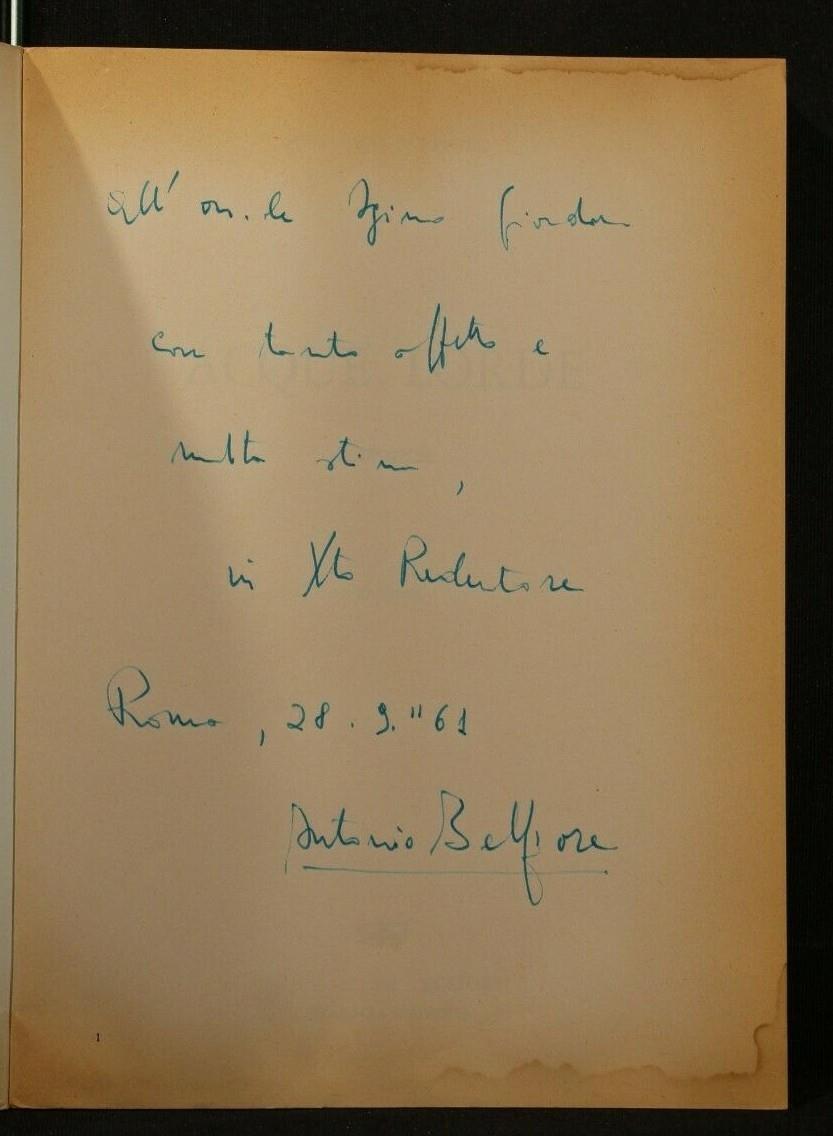 all' on.le Igino Giordani
con tanto affetto e
molta stima,
in Xto Redentore
Roma, 28.9."61
Antonio Belfiore
1